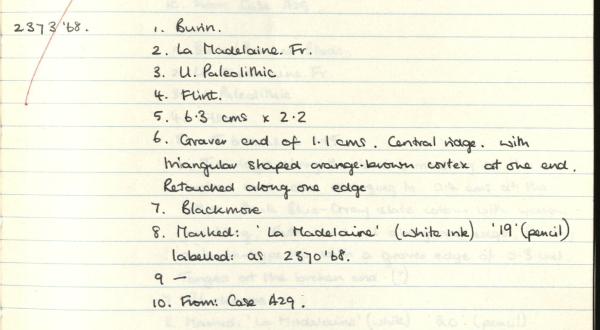 2373'68. 1. Burin.
2. La Madelaine. Fr.
3. U. Paleolithic
4. Flint.
5. 6.3 cms x 2.2
6. Graver end of 1.1 cms. Central ridge. with
triangular shaped orange-brown cortex at one end.
Retouched along one edge
7. Blackmore
8. Marked: 'La Madelaine' (white ink) '19' (pencil)
labelled: as 2370'68.
9 —
10. From: Case A29.